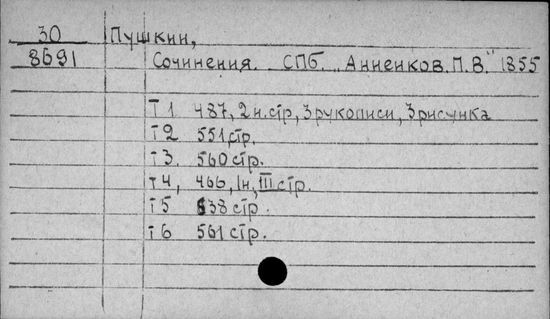 30 Пушкин,
8691 Сочинения. СПб. "Анненков. П.В." 1855
Т 1 487, 2 н.стр, 3 рукописи, 3 рисунка
Т 2 551 стр.
Т 3. 560 стр.
Т 4, 466, 1н, III стр.
Т 5 638 стр.
Т 6 561 стр.